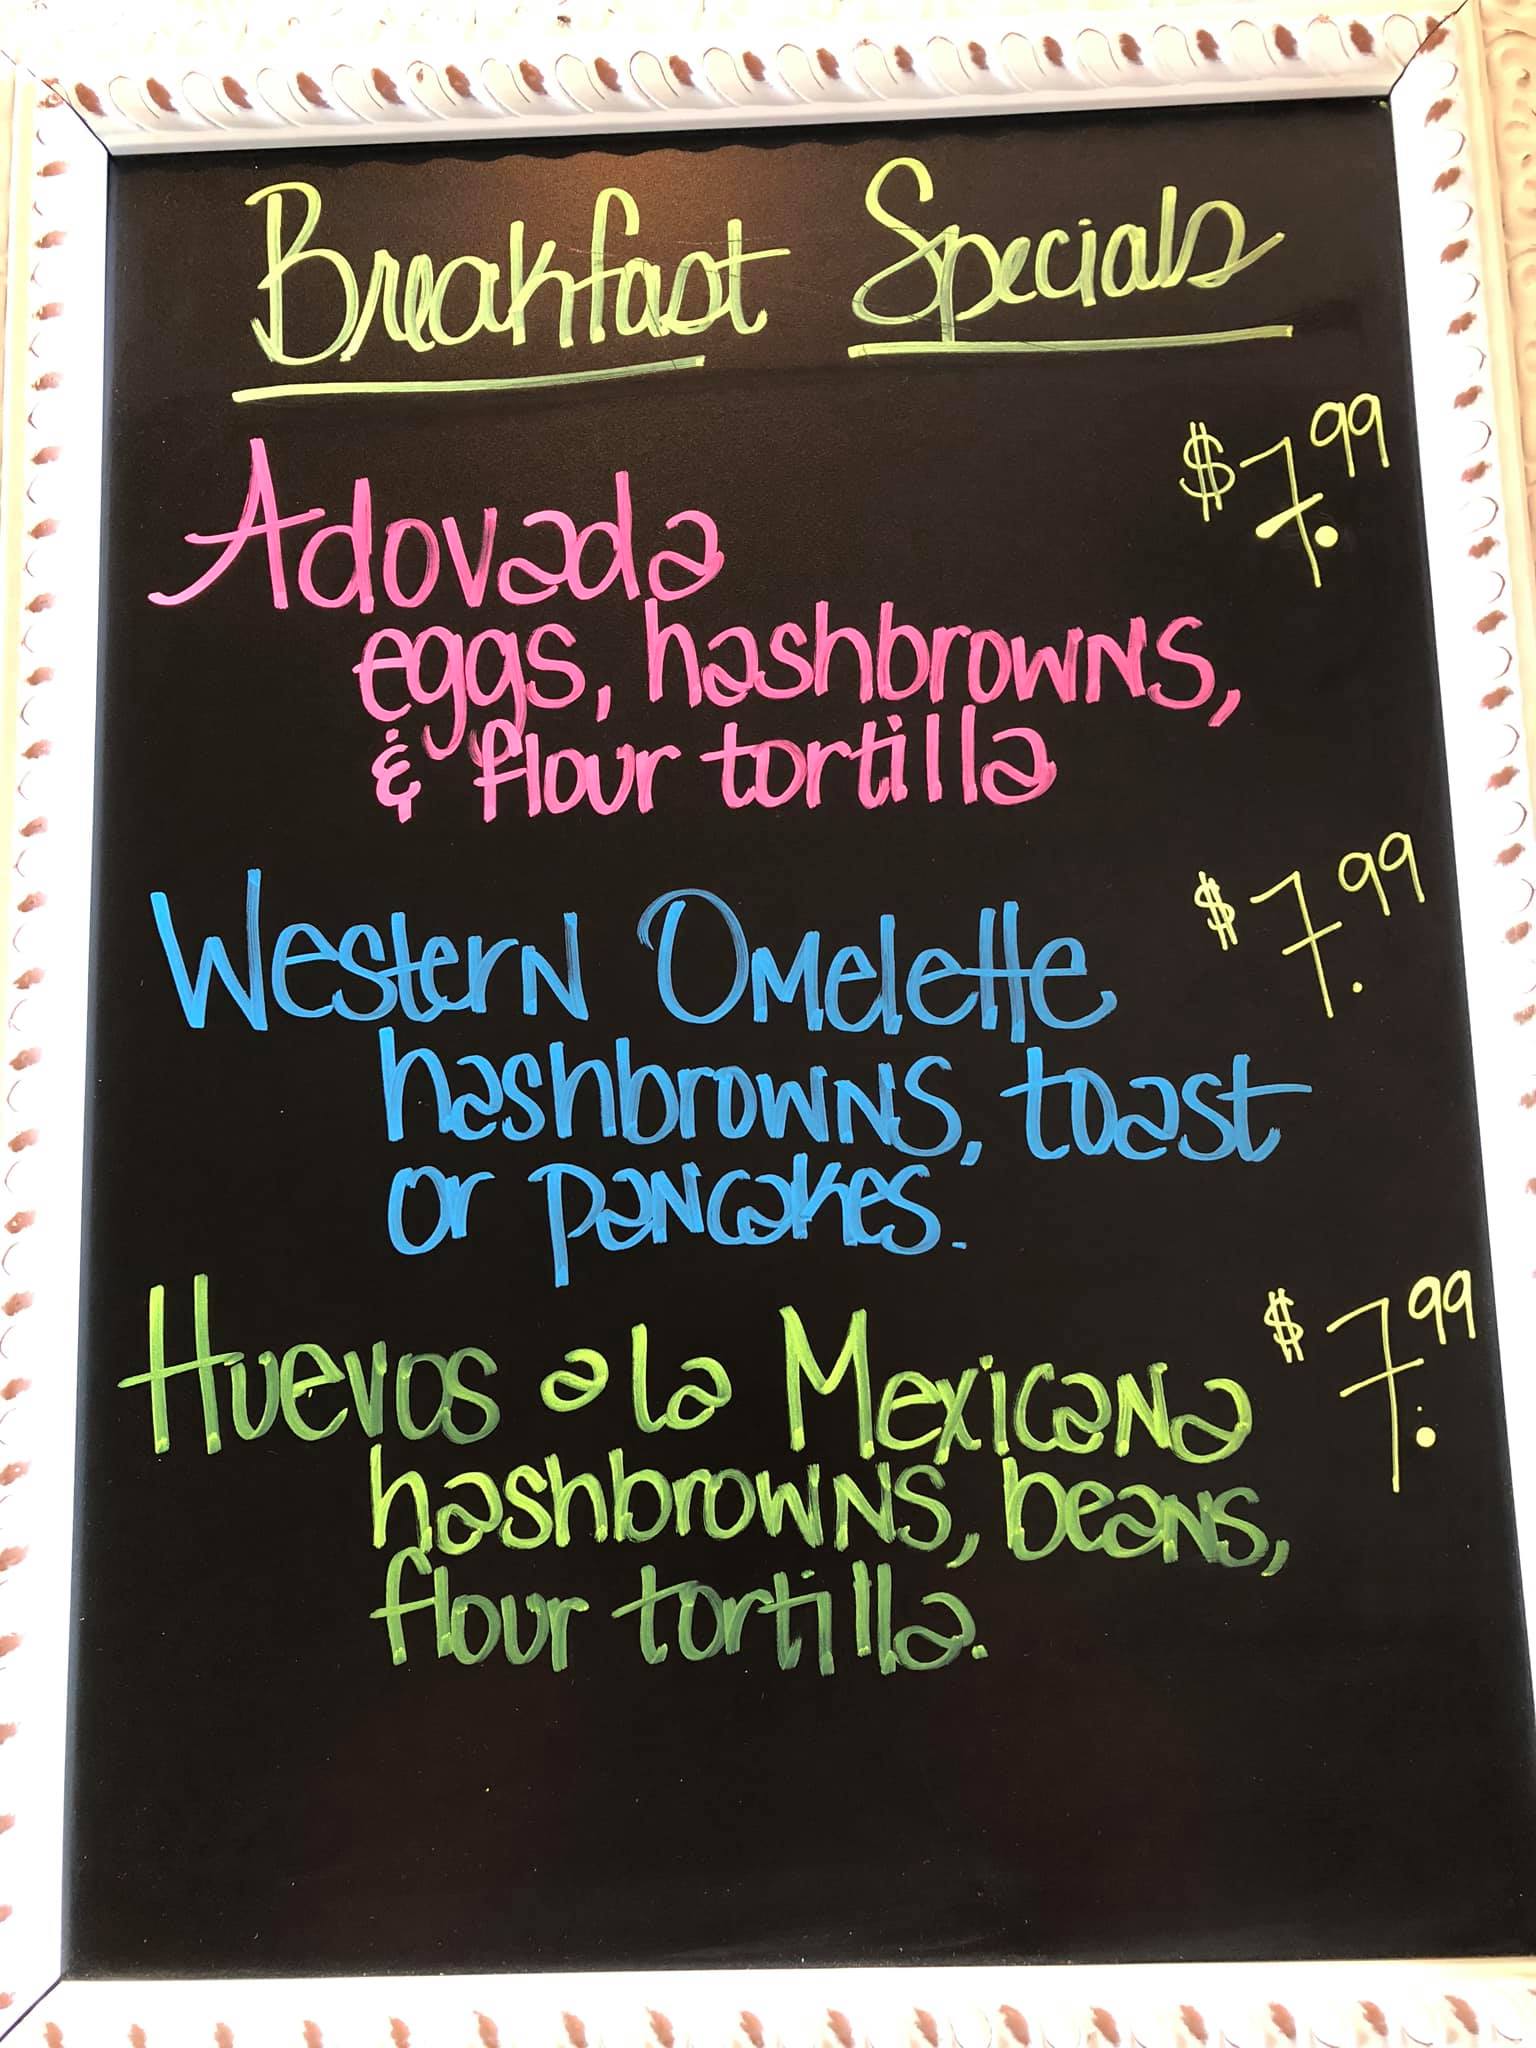 Breakfast Specials
Adovada $7.99
eggs, hashbrowns,
& flour tortilla
Western Omelette $7.99
hashbrowns, toast
or pancakes.
Huevos a la Mexicana $7.99
hashbrowns, beans,
flour tortilla.